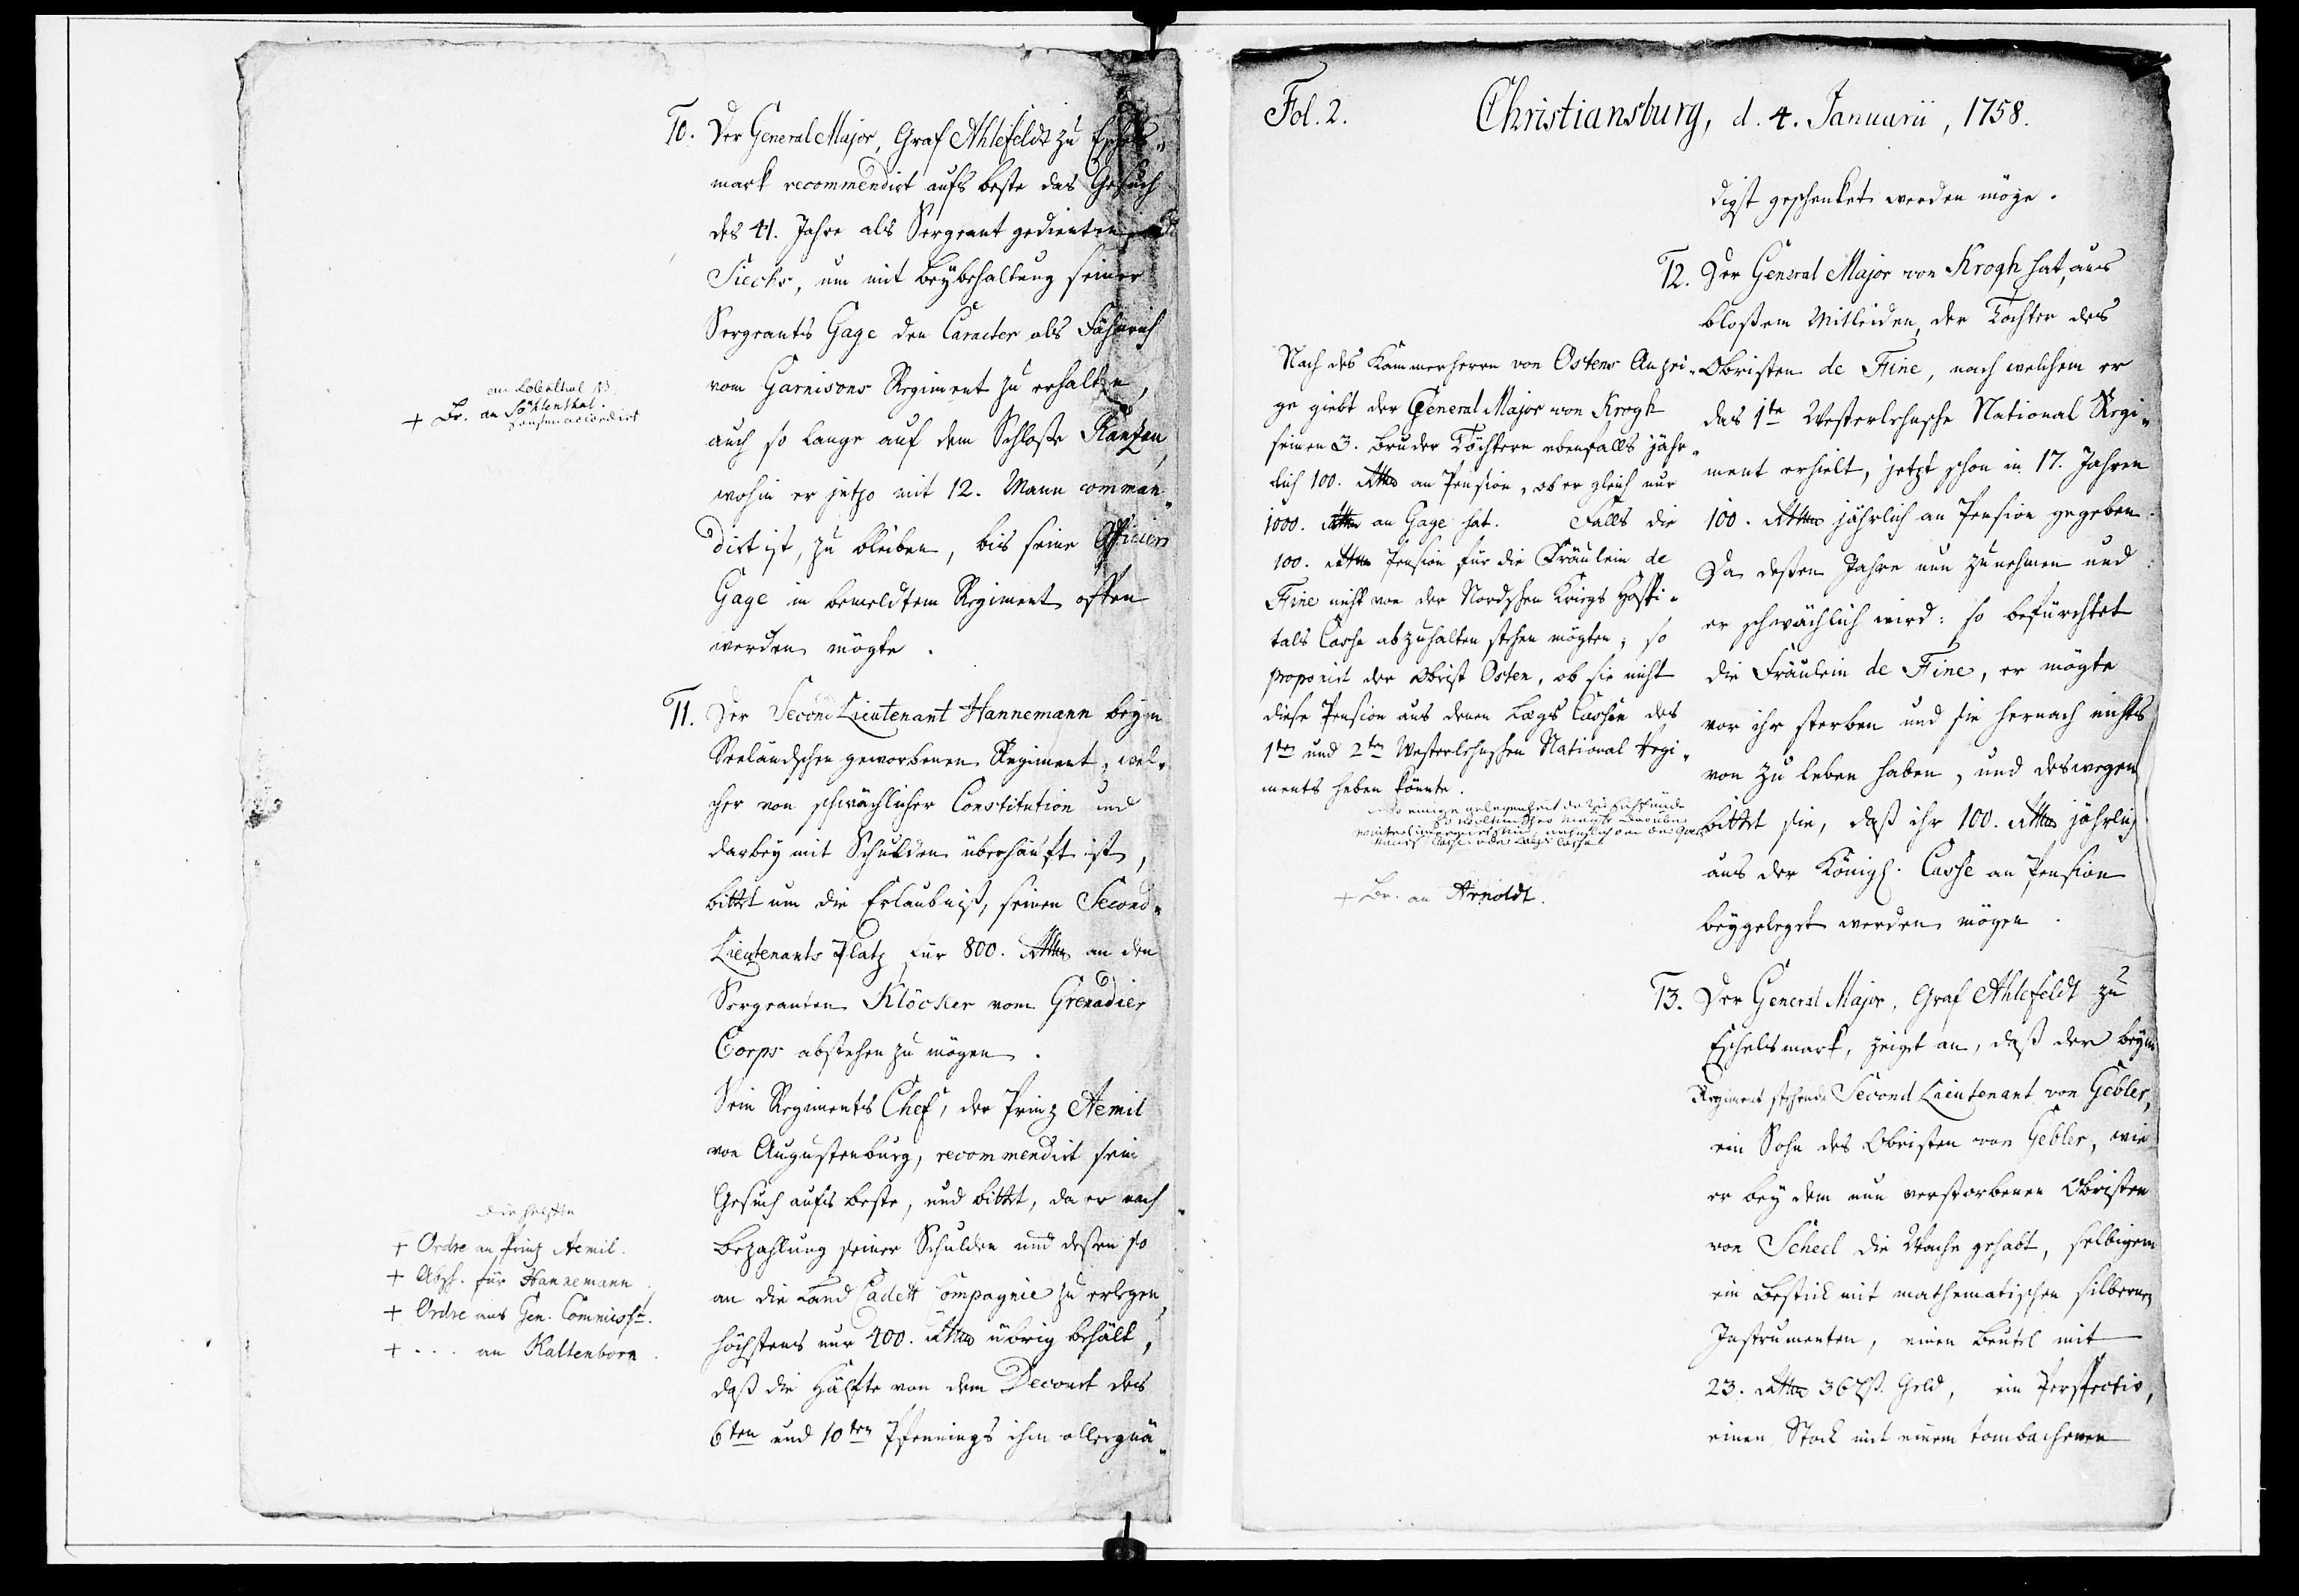 10. Der General Major, Graf Ahlefeldt zu Eschels„
mark recommendirt aufs beste das Gesuch
des 41. Jahre als Sergeant gedienten
Siecks, um mit Beybehaltung seiner
Sergeants Gage den Caracter als Fähnrich
vom Garnisons Regiment zu erhalten,
auch so lange auf dem Schlosse Ranzau,
wohin er jetzo mit 12. Mann comman„
dirt ist, zu bleiben, bis seine Officiers
Gage in bemeldtem Regiment offen
werden mögte.
+ Br. an Söhlenthal.
accordirt
11. Der Second Lieutenant Hannemann beym
Seeländschen geworbenen Regiment, wel„
cher von schwächlicher Constitution und
darbey mit Schulden überhäuft ist,
bittet um die Erlaubniß, seinen Second„
Lieutenants Platz für 800. Rthlr an den
Sergeanten Klöcker vom Grenadier
Corps abstehen zu mögen.
Sein Regiments Chef, der Prinz Aemil
von Augustenburg, recommendirt sein
Gesuch aufs beste, und bittet, da er nach
Bezahlung seiner Schulden und dessen so
an die Land Cadett Compagnie zu erlegen,
höchstens nur 400. Rthlr übrig behält,
daß die Hälfte von dem Decourt des
6ten und 10ten Pfennings ihm allergnä„
die helfte
+ Ordre an Prinz Aemil.
+ Absch. für Hannemann.
+ Ordre ans Gen. Commiss:t.
+ ... an Kaltenborn.
Fol. 2. Christiansburg, d. 4. Januarii, 1758.
digst geschenket werden möge.
12. Der General Major von Krogh hat, aus
bloßem Mitleiden, der Tochter des
Obristen de Fine, nach welchem er
das 1te Westerlehnsche National Regi„
ment erhielt, jetzt schon in 17. Jahren
100. Rthlr jährlich an Pension gegeben.
Da dessen Jahre nun zunehmen und
er schwächlich wird: so befürchtet
die Fräulein de Fine, er mögte
vor ihr sterben und sie hernach nichts
von zu leben haben, und deswegen
bittet sie, daß ihr 100. Rthlr jährlich
aus der Königl. Casse an Pension
beygelegt werden mögen.
Nach des Kammerherrn von Ostens Anzei„
ge giebt der General Major von Krogh
seinen 3. Bruder Töchtern ebenfalls jähr„
lich 100. Rthlr an Pension, ob er gleich nur
1000. Rthlr an Gage hat. Falls die
100. Rthlr Pension für die Fräulein de
Fine nicht von der Nordschen Kriegs Hospi„
tals Casse abzuhalten stehen mögten; so
proponirt der Obrist Osten, ob sie nicht
diese Pension aus denen Lægs Cassen des
1ten und 2ten Westerlehnschen National Regi„
ments heben könte.
einige gelegenheit da
Casse oder Lægs Casse
+ Br. an Arnoldt.
2
13. Der General Major, Graf Ahlefeldt zu
Eschelsmark, zeigt an, daß der beym
Regiment stehende Second Lieutenant von Gebler,
ein Sohn des Obristen von Gebler, wie
er bey dem nun verstorbenen Obristen
von Scheel die Wache gehabt, selbigem
ein Bestick mit mathematischen silbernen
Instrumenten, einen Beutel mit
23. Rthlr 36 lß. Geld, ein Perspectiv,
einen Stock mit einem tombachenen